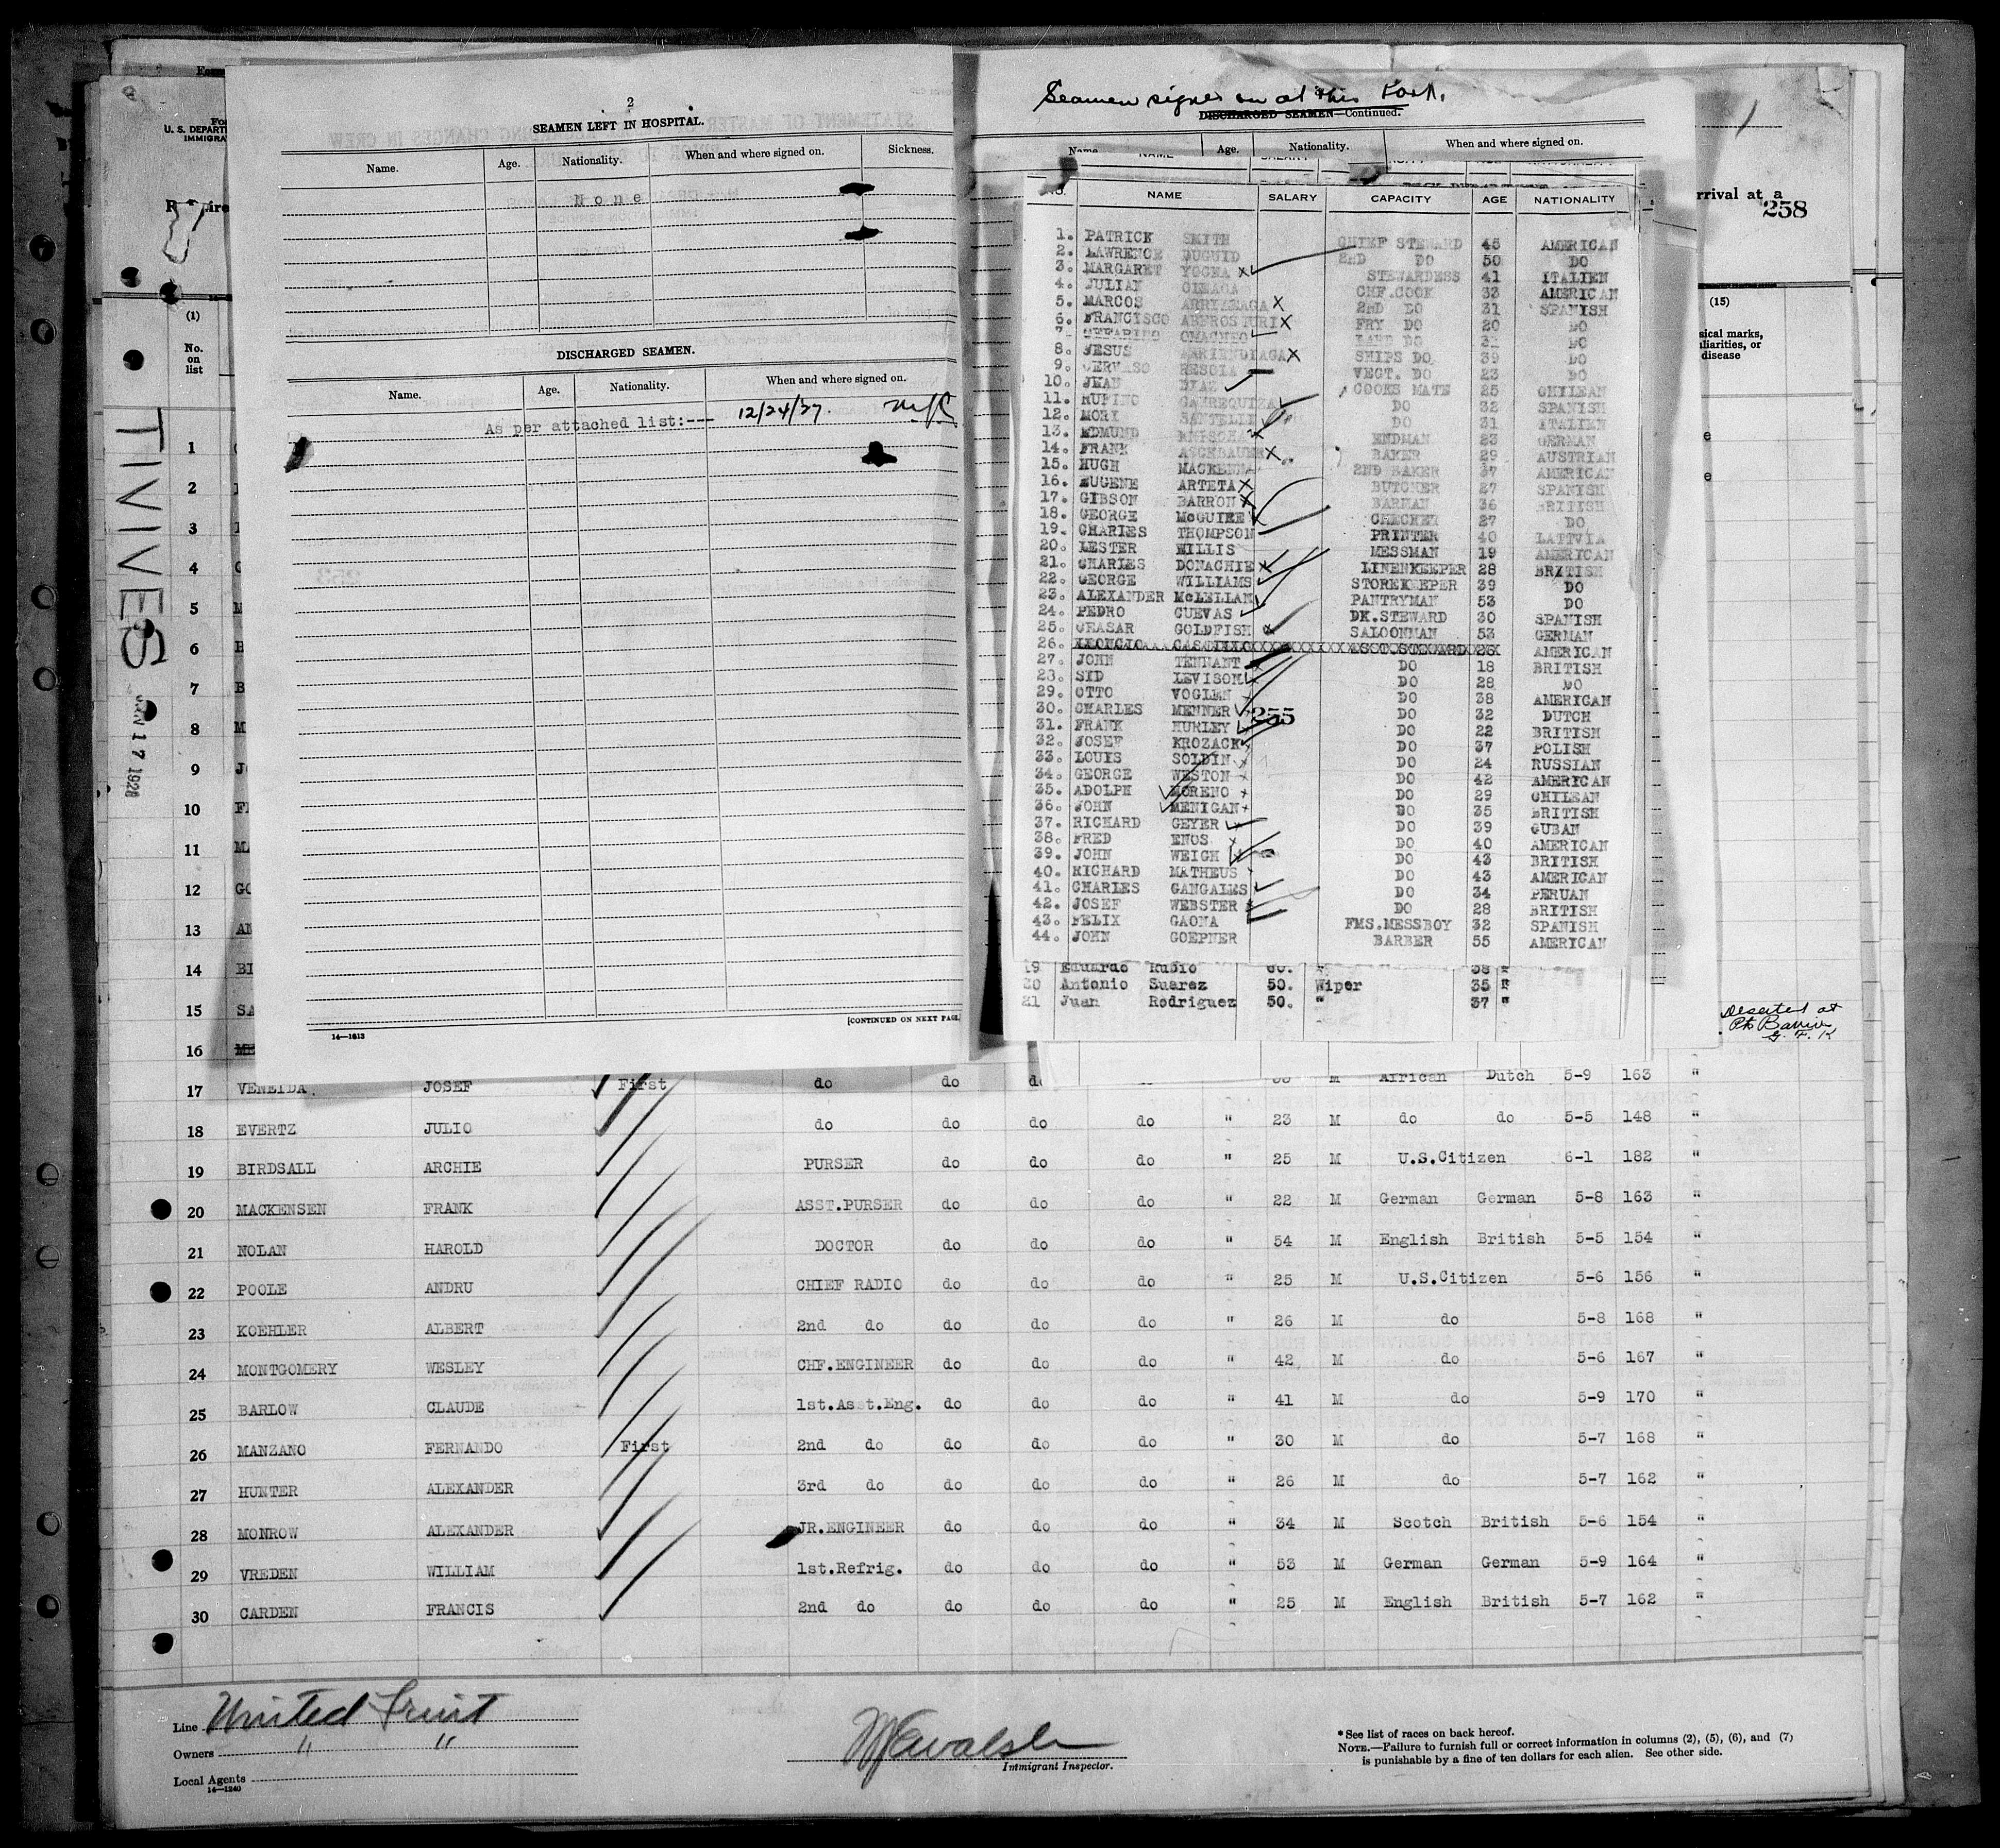 2
SEAMEN LEFT IN HOSPITAL.
Name. Age. Nationality. When and where signed on. Sickness.
None
DISCHARGED SEAMEN.
Name. Age. Nationality. When and where signed on.
As per attached list:--- 12/24/27.
[CONTINUED ON NEXT PAGE.
14—1613
Seamen signed on at this Port.
DISCHARGED SEAMEN—Continued.
Name Age. Nationality. When and where signed on.
NO. NAME SALARY CAPACITY AGE NATIONALITY
1. PATRICK SMITH CHIEF STEWARD 45 AMERICAN
2. LAWRENCE DUGUID 2ND DO 50 DO
3. MARGARET YOGHA STEWARDESS 41 ITALIEN
4. JULIAN CHF.COOK 33 AMERICAN
5. MARCOS 2ND DO 31 SPANISH
6. FRANCISCO FRY DO 20 DO
7. DO
8. JESUS SHIPS DO 39 DO
9. GERVASO VEGT. DO 23 DO
10. JUAN DIAZ COOKS MATE 25 CHILEAN
11. RUFINO DO 32 SPANISH
12. MORI DO 31 ITALIEN
13. EDMUND ENDMAN 23 GERMAN
14. FRANK BAKER 29 AUSTRIAN
15. HUGH 2ND BAKER 37 AMERICAN
16. EUGENE ARTETA BUTCHER 27 SPANISH
17. GIBSON BARRON BARMAN 36 BRITISH
18. GEORGE McGUIRE CHECKER 27 DO
19. CHARLES THOMPSON PRINTER 40 LATTVIA
20. LESTER WILLIS MESSMAN 19 AMERICAN
21. CHARLES DONACHIE LINENKEEPER 28 BRITISH
22. GEORGE WILLIAMS STOREKEEPER 39 DO
23. ALEXANDER McLELLAN PANTRYMAN 53 DO
24. PEDRO CUEVAS DK.STEWARD 30 SPANISH
25. CEASAR GOLDFISH SALOONMAN 53 GERMAN
26. AMERICAN
27. JOHN TENNANT DO 18 BRITISH
28. SID LEVISON DO 28 DO
29. OTTO VOGLEN DO 38 AMERICAN
30. CHARLES MENNER DO 32 DUTCH
255
31. FRANK HURLEY DO 22 BRITISH
32. JOSEF KROZACK DO 37 POLISH
33. LOUIS SOLDIN DO 24 RUSSIAN
34. GEORGE WESTON DO 42 AMERICAN
35. ADOLPH MORENO DO 29 CHILEAN
36. JOHN MENIGAN DO 35 BRITISH
37. RICHARD GEYER DO 39 CUBAN
38. FRED ENOS DO 40 AMERICAN
39. JOHN WEIGH DO 43 BRITISH
40. RICHARD MATHEUS DO 43 AMERICAN
41. CHARLES GANGALES DO 34 PERUAN
42. JOSEF WEBSTER DO 28 BRITISH
43. FELIX GAONA FMS.MESSBOY 32 SPANISH
44. JOHN GOEPNER BARBER 55 AMERICAN
19 Eduardo Rubio 60. " 38 "
20 Antonio Suarez 50. Wiper 35 "
21 Juan Rodriguez 50. " 37 "
U. S. DEPART
IMMIGRA
rrival at a
258
(1)
No. on list
(15)
sical marks,
liarities, or
disease
TIVIVES
JAN 17 1928
1
2
3
4
5
6
7
8
9
10
11
12
13
14
15
16
Deserted at
G. F. K
17 VENEIDA JOSEF First do do M African Dutch 5-9 163 "
18 EVERTZ JULIO do do do do " 23 M do do 5-5 148 "
19 BIRDSALL ARCHIE PURSER do do do " 25 M U.S.Citizen 6-1 182 "
20 MACKENSEN FRANK ASST.PURSER do do do " 22 M German German 5-8 163 "
21 NOLAN HAROLD DOCTOR do do do " 54 M English British 5-5 154 "
22 POOLE ANDRU CHIEF RADIO do do do " 25 M U.S.Citizen 5-6 156 "
23 KOEHLER ALBERT 2nd do do do do " 26 M do 5-8 168 "
24 MONTGOMERY WESLEY CHF.ENGINEER do do do " 42 M do 5-6 167 "
25 BARLOW CLAUDE 1st.Asst.Eng. do do do " 41 M do 5-9 170 "
26 MANZANO FERNANDO First 2nd do do do do " 30 M do 5-7 168 "
27 HUNTER ALEXANDER 3rd do do do do " 26 M do 5-7 162 "
28 MONROW ALEXANDER JR.ENGINEER do do do " 34 M Scotch British 5-6 154 "
29 VREDEN WILLIAM 1st.Refrig. do do do " 53 M German German 5-9 164 "
30 CARDEN FRANCIS 2nd do do do do " 25 M English British 5-7 162 "
Line United Fruit
Owners " "
Local Agents
14—1240
Immigrant Inspector.
*See list of races on back hereof.
NOTE.—Failure to furnish full or correct information in columns (2), (5), (6), and (7)
is punishable by a fine of ten dollars for each alien. See other side.